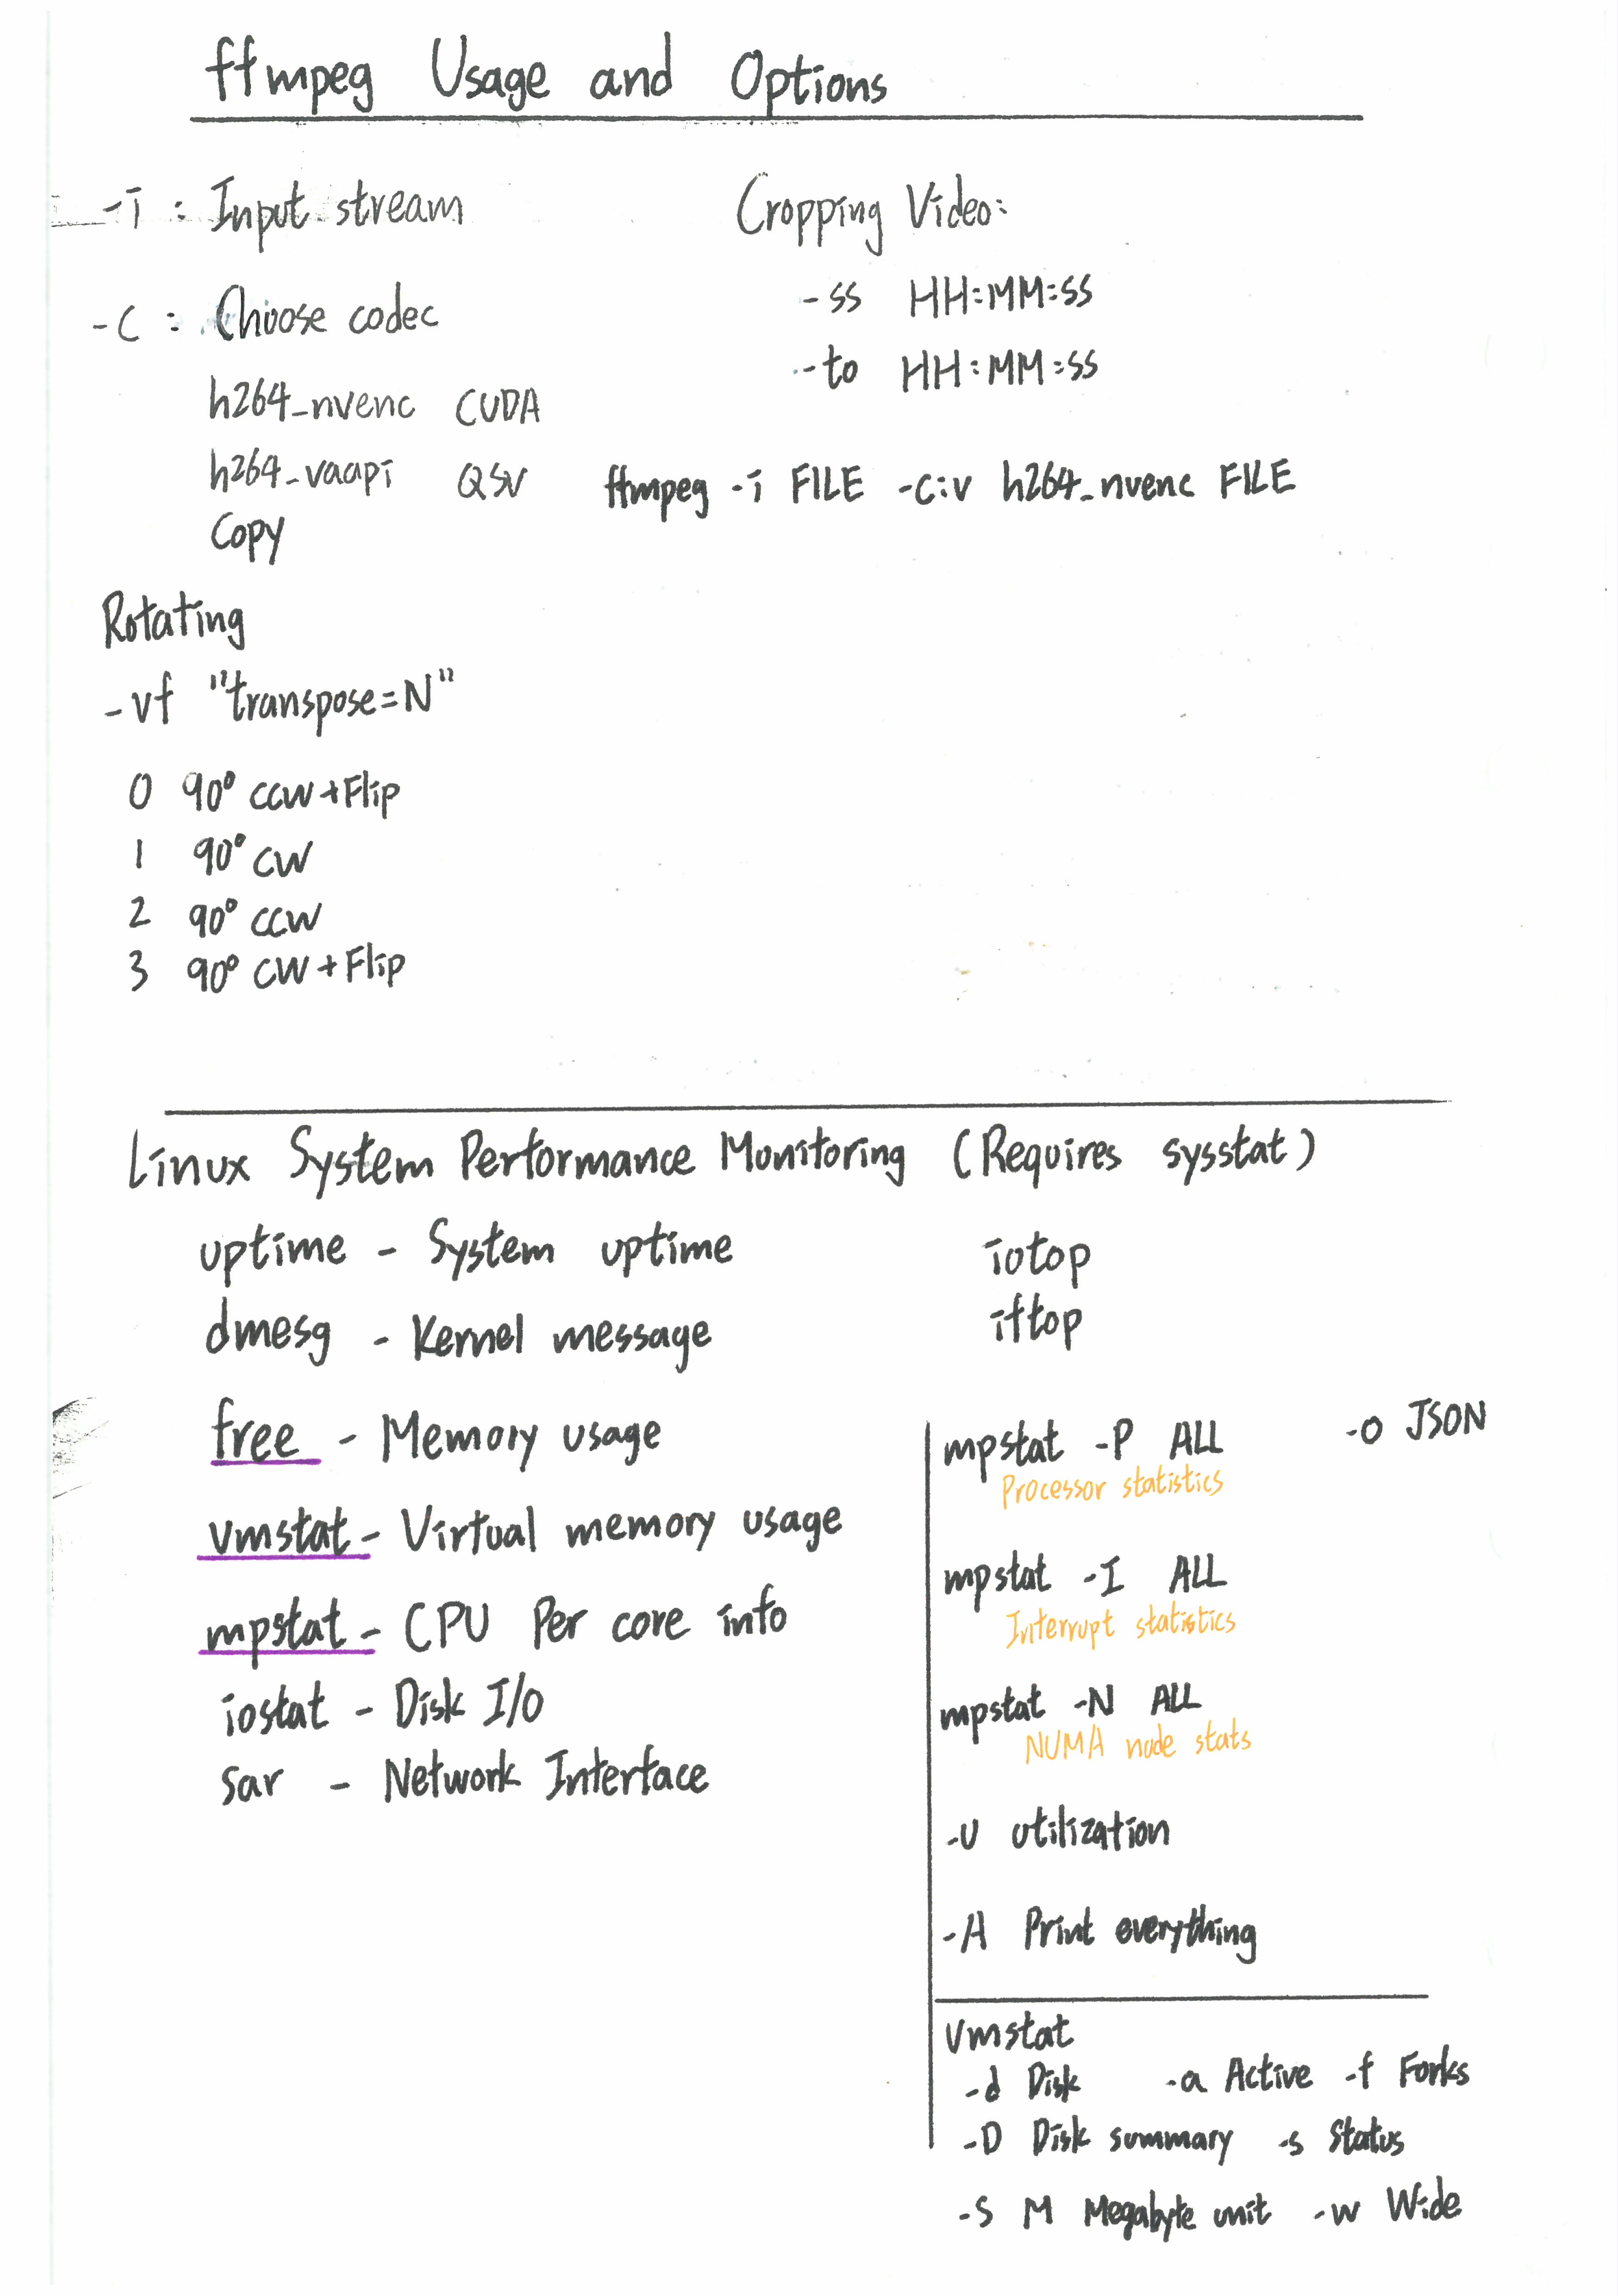 ffmpeg Usage and Options
-i : Input stream
-c : Choose codec
h264_nvenc CUDA
h264_vaapi QSV
Copy
Cropping Video:
-ss HH:MM:SS
-to HH:MM:SS
ffmpeg -i FILE -c:v h264_nvenc FILE
Rotating
-vf "transpose=N"
0 90° CCW+Flip
1 90° CW
2 90° CCW
3 90° CW+Flip
Linux System Performance Monitoring (Requires sysstat)
uptime - System uptime
dmesg - Kernel message
free - Memory usage
vmstat - Virtual memory usage
mpstat - CPU Per core info
iostat - Disk I/O
sar - Network Interface
iotop
iftop
mpstat -P ALL -o JSON
Processor statistics
mpstat -I ALL
Interrupt statistics
mpstat -N ALL
NUMA node stats
-u utilization
-A Print everything
vmstat
-d Disk -a Active -f Forks
-D Disk summary -s Status
-S M Megabyte unit -w Wide